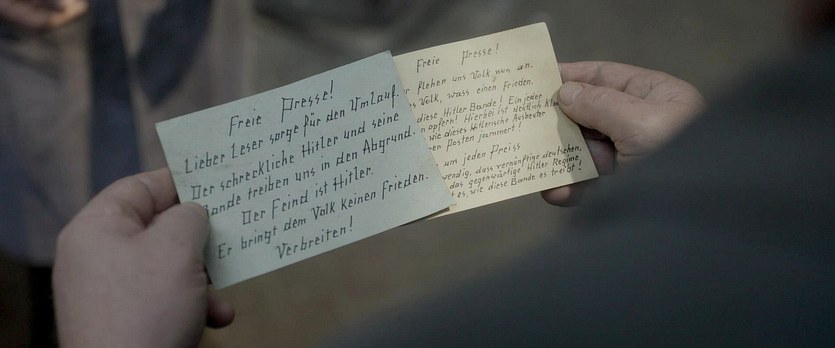 Freie Presse!
Lieber Leser sorge für den Umlauf.
Der schreckliche Hitler und seine
Bande treiben uns in den Abgrund.
Der Feind ist Hitler.
Er bringt dem Volk keinen Frieden.
Verbreiten!
Freie Presse!
flehen uns Volk nun an.
Volk, wass einen Frieden.
diese Hitler Bande! Ein jeder
opfern! Hierbei ist deutlich
wie dieses Hitlerische Ausbeuter
Posten jammert!
um jeden Preiss
wendig, dass vernünftige deutschen,
das gegenwärtige Hitler Regime,
es, wie diese Bande es treibt!